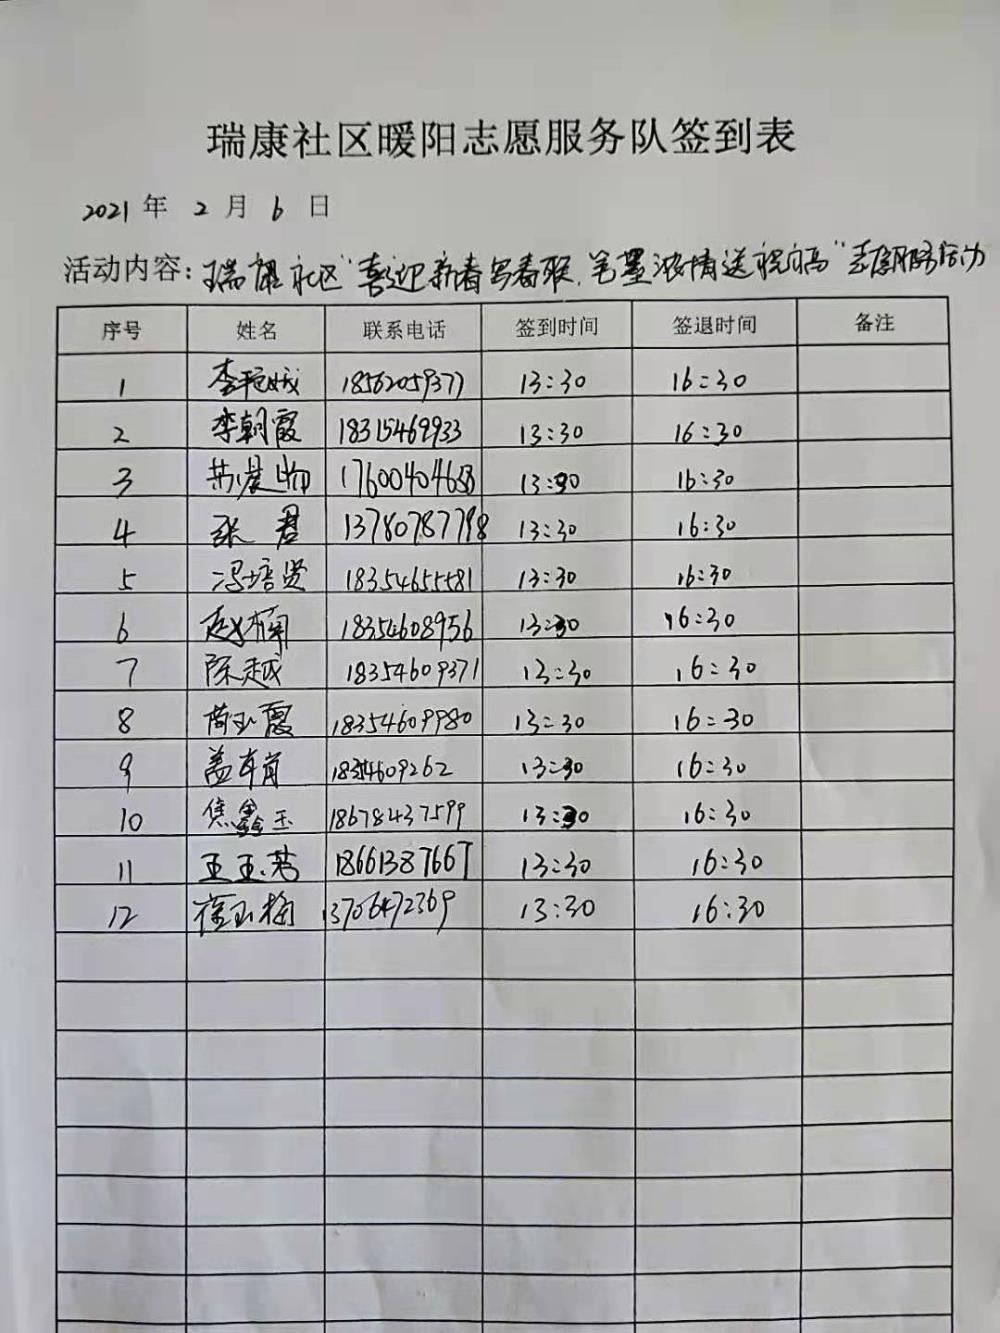 瑞康社区暖阳志愿服务队签到表
2021 年 2 月 6 日
活动内容：瑞康社区“喜迎新春写春联，笔墨浓情送祝福”志愿服务活动
序号 姓名 联系电话 签到时间 签退时间 备注
1 李艳娥 18562059377 13:30 16:30
2 李朝霞 18315469933 13:30 16:30
3 17600404658 13:30 16:30
4 张君 13780787798 13:30 16:30
5 冯培贤 18354655581 13:30 16:30
6 赵楠 18354608956 13:30 16:30
7 陈越 18354609371 13:30 16:30
8 荷玉霞 18354609980 13:30 16:30
9 盖 18354609262 13:30 16:30
10 焦鑫玉 18678437599 13:30 16:30
11 王玉芳 18661387667 13:30 16:30
12 徐玉梅 13706472369 13:30 16:30